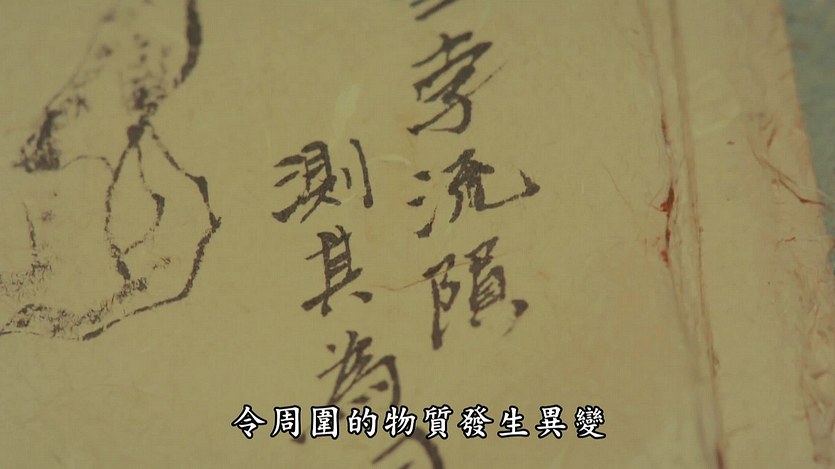 孛流隕
測其為
令周圍的物質發生異變